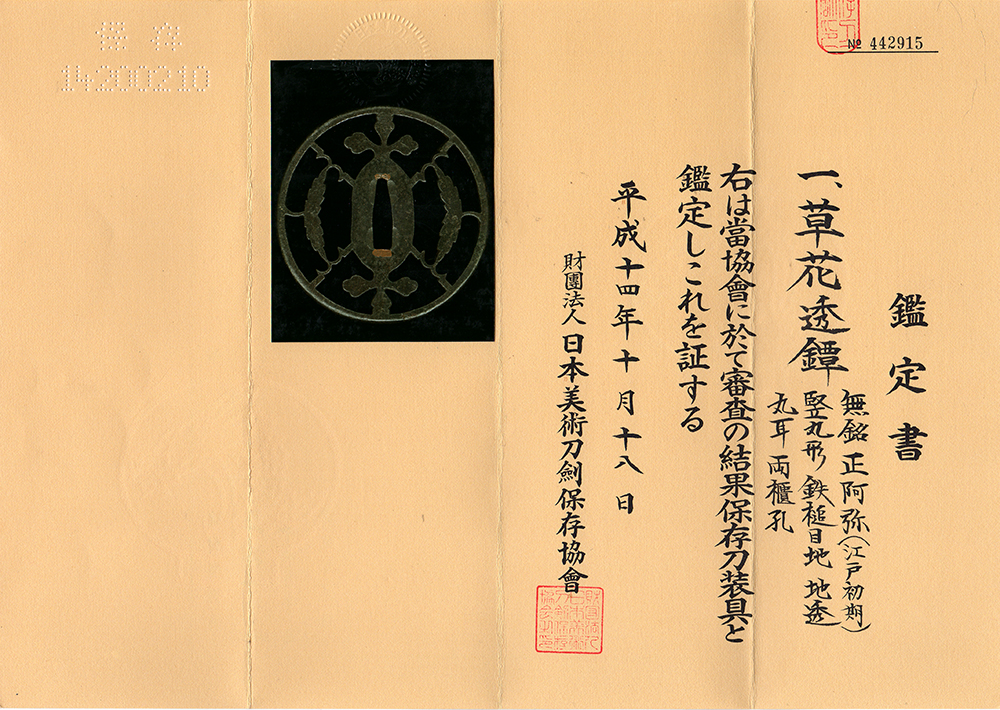 № 442915
鑑定書
一、草花透鐔
無銘 正阿弥(江戸初期)
竪丸形 鉄槌目地 地透
丸耳 両櫃孔
右は當協會に於て審査の結果保存刀装具と
鑑定しこれを証する
平成十四年十月十八日
財團法人日本美術刀劍保存協會
保存
14200210